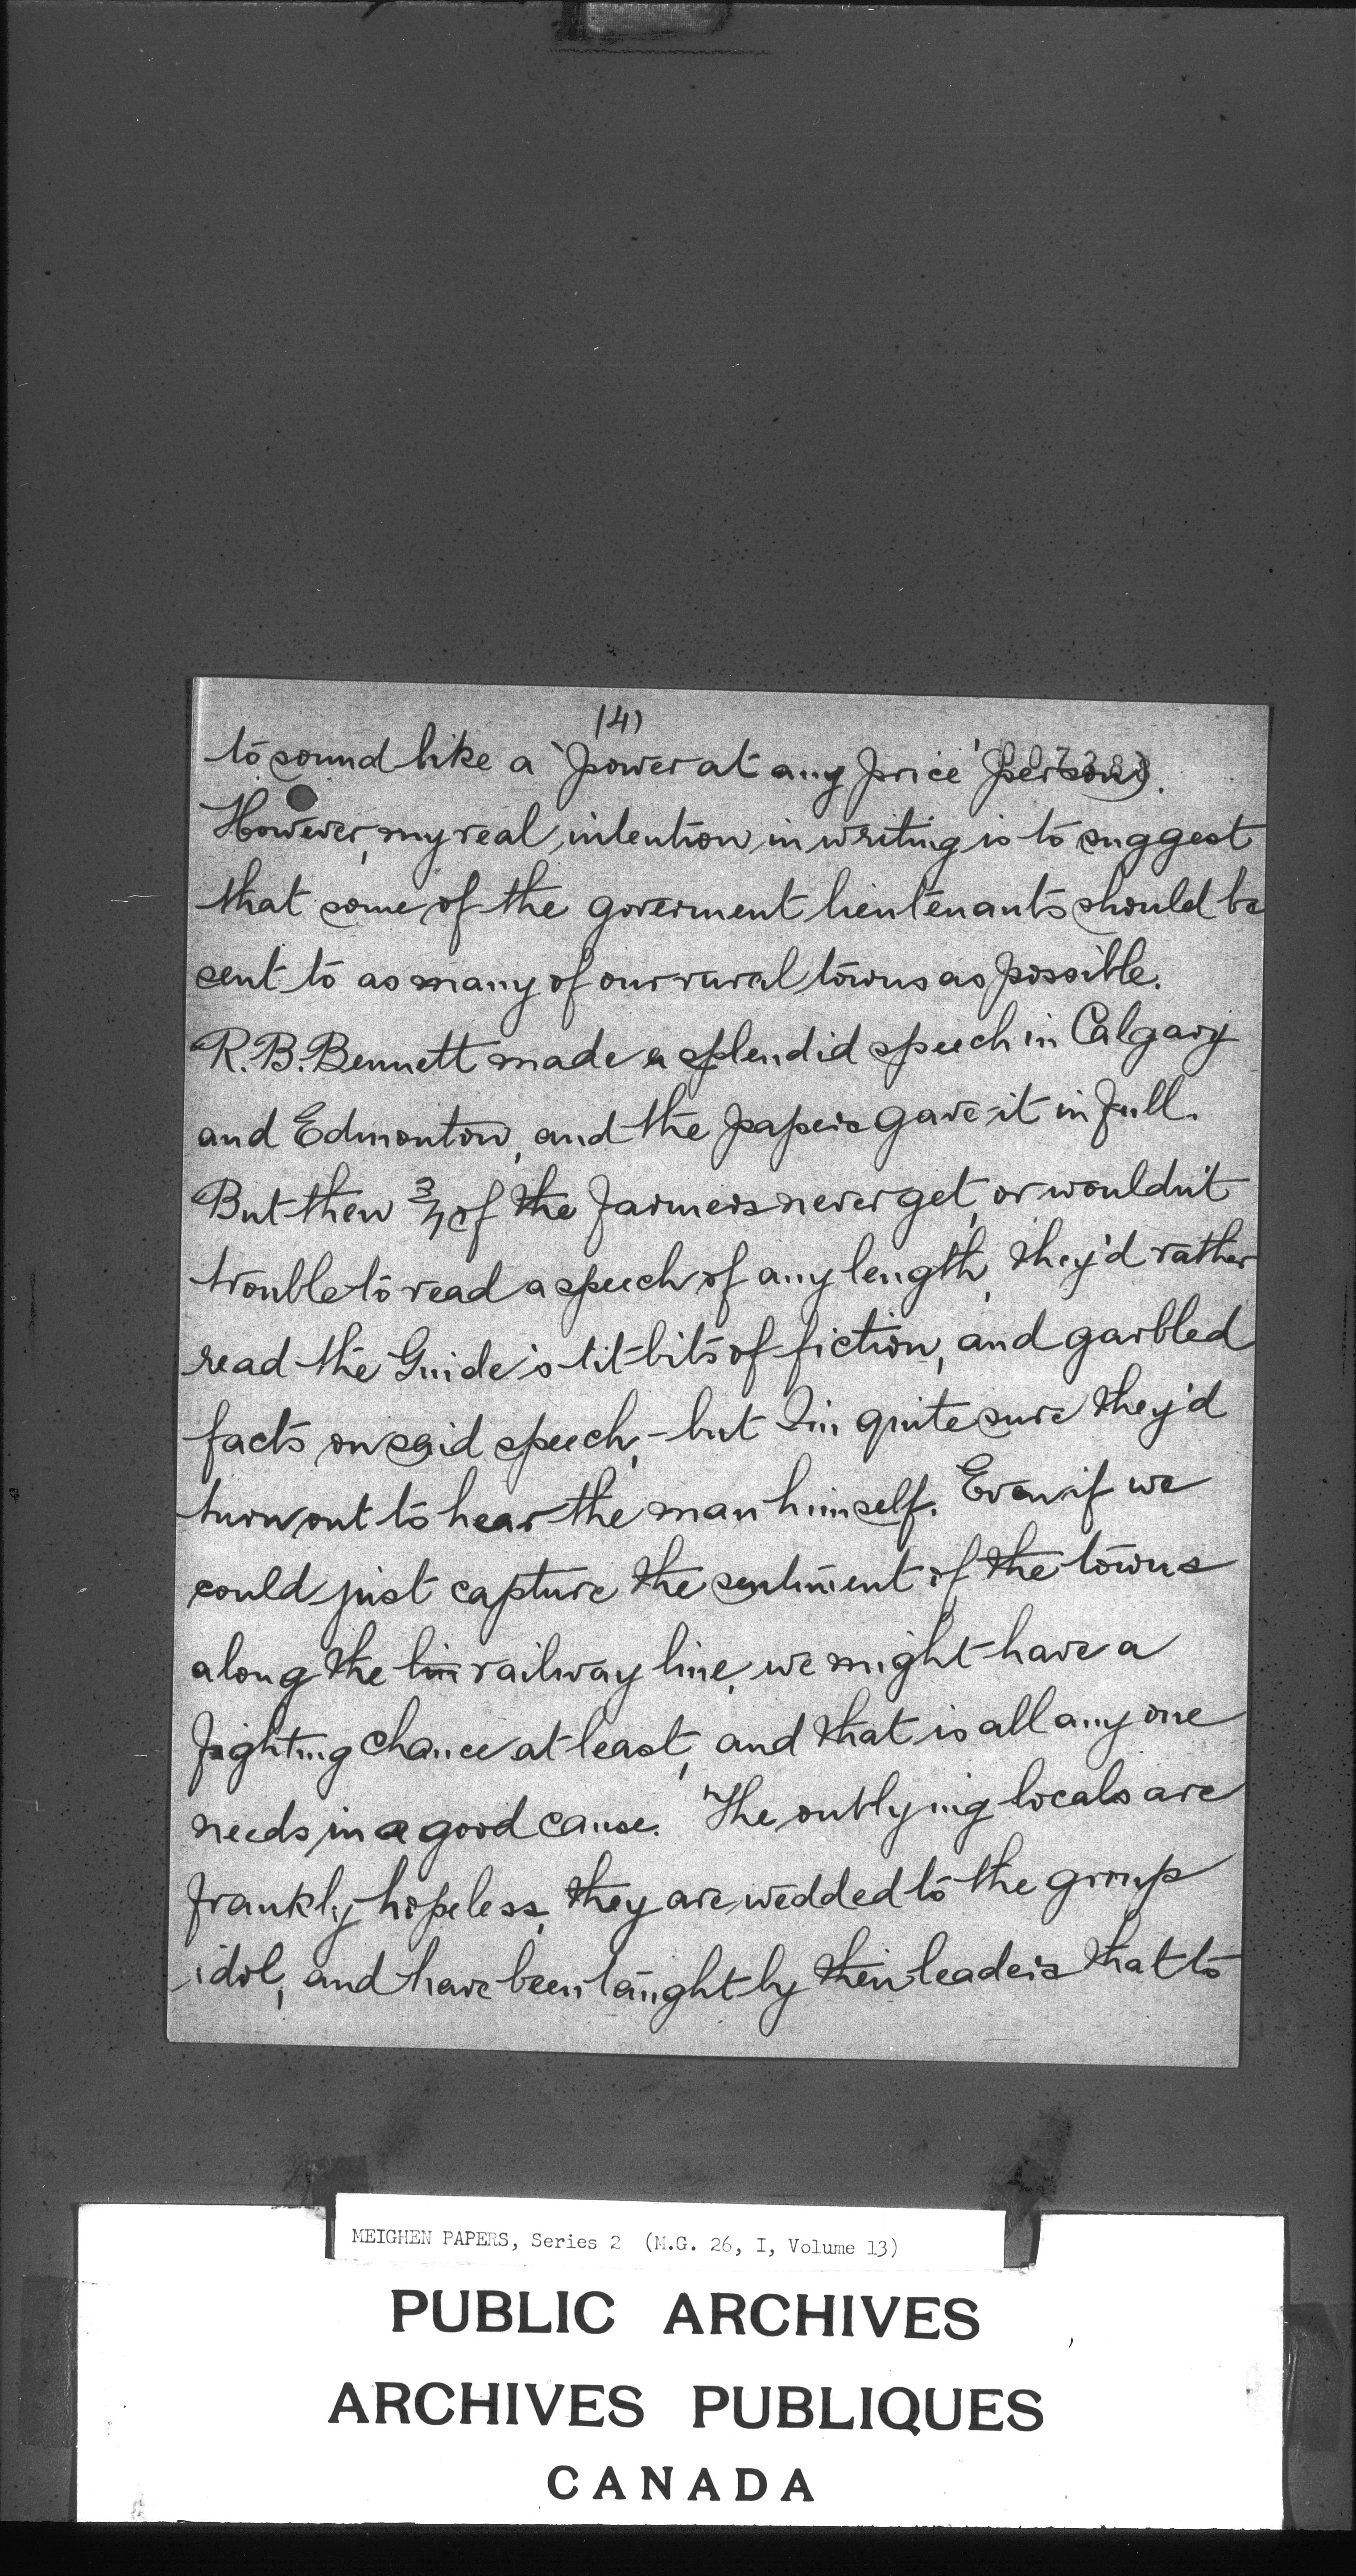 (4)
to sound like a 'power at any price' person).
However, my real intention in writing is to suggest
that some of the goverment lieutenants should be
sent to as many of our rural towns as possible.
R. B. Bennett made a splendid speech in Calgary
and Edmonton, and the papers gave it in full.
But then of the farmers never get, or wouldn't
trouble to read a speech of any length, they'd rather
read the Guide's tit-bits of fiction, and garbled
facts on said speech, - but I'm quite sure they'd
turn out to hear the man himself. Even if we
could just capture the sentiment of the towns
along the lin railway line, we might have a
fighting chance at least, and that is all any one
needs in a good cause. The outlying locals are
frankly hopeless, they are wedded to the group
idol, and have been taught by their leaders that to
MEIGHEN PAPERS, Series 2 (M.G. 26, I, Volume 13)
PUBLIC ARCHIVES
ARCHIVES PUBLIQUES
CANADA